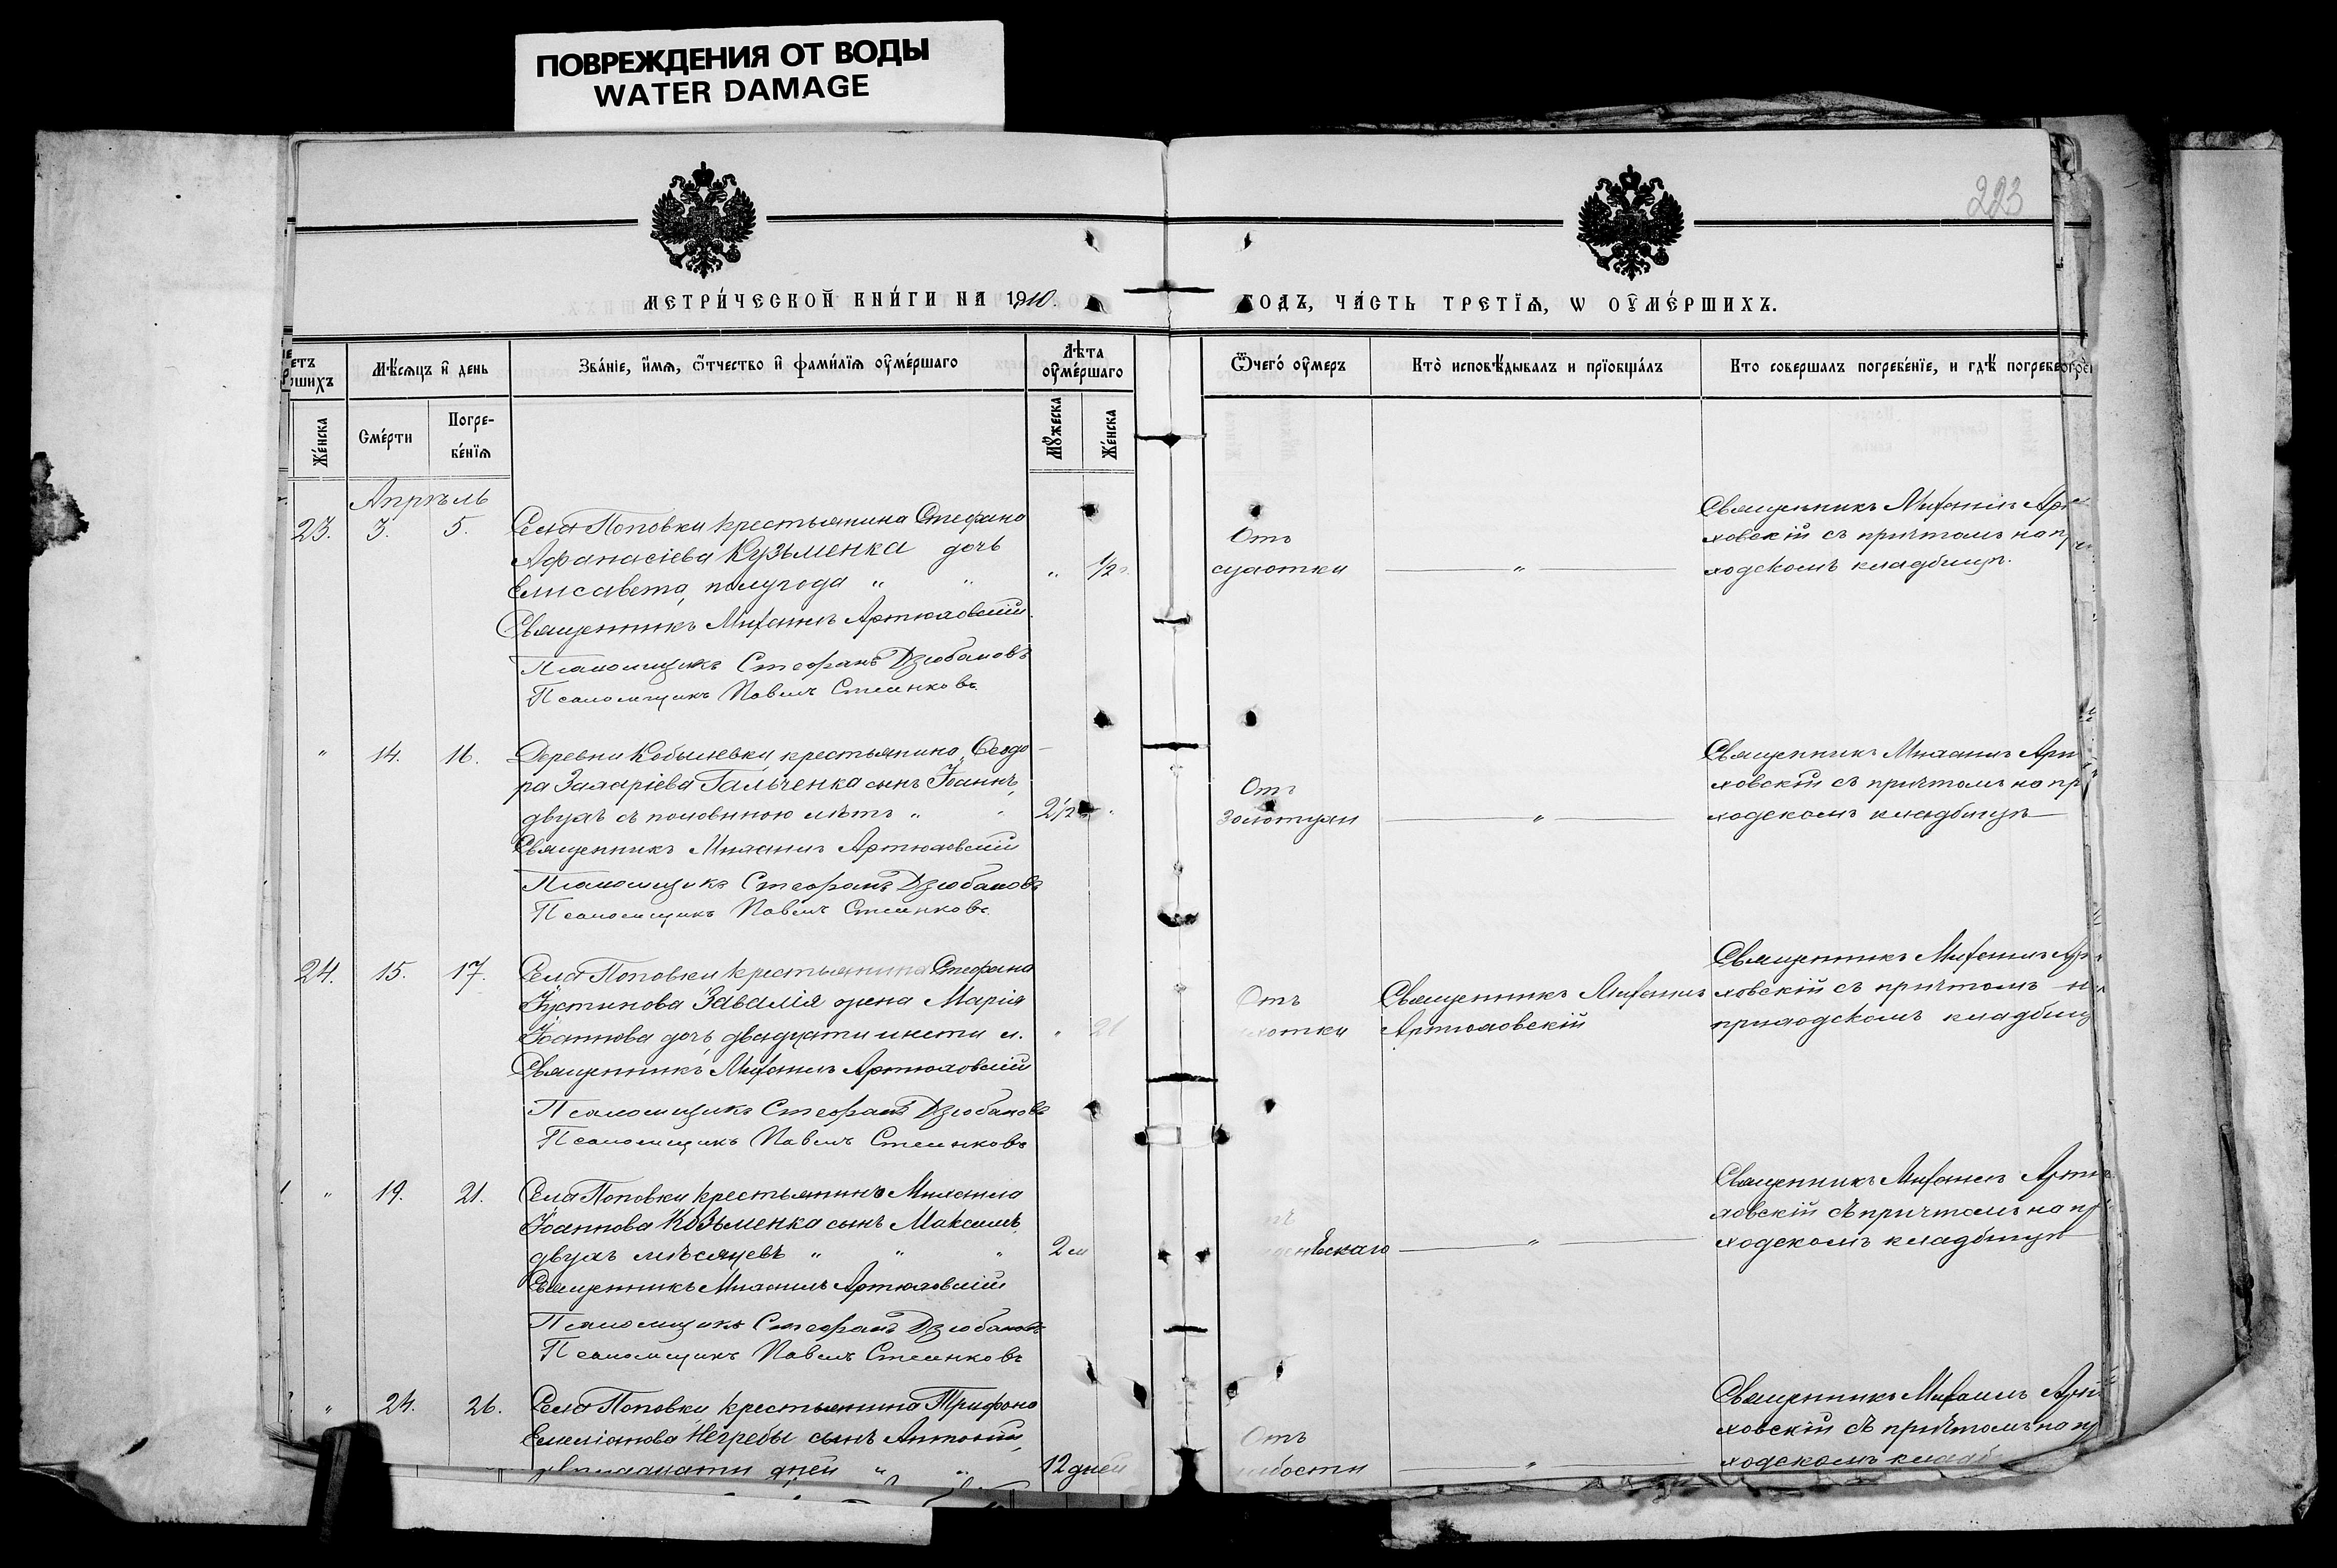 ПОВРЕЖДЕНИЯ ОТ ВОДЫ
WATER DAMAGE
223
МЕТРИ́ЧЕСКОЙ КНИ́ГИ НА 1910.
ГОДЪ, ЧА́СТЬ ТРЕТЇѦ, Ѡ ОУ҆МЕ́РШИХЪ.
Мѣ́сѧцъ и҆ день
Зва́нїе, и҆́мѧ, ѻ҆́тчество и҆ фами́лїѧ оу҆ме́ршаго
Лѣта
оу҆ме́ршаго
Ѿчего́ оу҆меръ
Кто̀ исповѣ́дывалъ и прїобща́лъ
Кто совершалъ погребе́нїе, и гдѣ̀ погребе
Же́нска
Сме́рти
Погре-
бе́нїѧ
Мꙋ́жеска
Же́нска
Апрѣль
23. 3. 5. Села Поповки крестьянина Стефана
Афанасіева Кузьменка дочь
Елисавета, полугода " "
" 1/2
Священникъ Михаилъ Артюховскій
Псаломщикъ Стефанъ Дзюбановъ
Псаломщикъ Павелъ
Отъ
сухотки
"
Священникъ Михаилъ
ховскій съ причтомъ на
ходскомъ кладбищѣ.
" 14. 16. Деревни Кобылевки, крестьянина Ѳеодо
ра Захаріева Гальченка сынъ Іоаннъ,
двухъ съ половиною лѣтъ "
2 1/2 "
Священникъ Михаилъ Артюховскій
Псаломщикъ Стефанъ Дзюбановъ
Псаломщикъ Павелъ
Отъ
золотухи
"
Священникъ Михаилъ
ховскій съ причтомъ на пр
ходскомъ кладбищѣ
24. 15. 17. Села Поповки крестьянина Стефана
Іустинова Завалія жена Марія
Іоаннова дочь, двадцати шести л.
"
Священникъ Михаилъ Артюховскій
Псаломщикъ Стефанъ Дзюбановъ
Псаломщикъ Павелъ
Отъ
Священникъ Михаилъ
Артюховскій
Священникъ Михаилъ
ховскій съ причтомъ
приходскомъ кладбищ
" 19. 21. Села Поповки крестьянина Михаила
Іоаннова Козьменка сынъ Максимъ,
двухъ мѣсяцевъ " " "
2 м
Священникъ Михаилъ Артюховскій
Псаломщикъ Стефанъ Дзюбановъ
Псаломщикъ Павелъ
"
Священникъ Михаилъ
ховскій съ причтомъ на
ходскомъ кладбищѣ
" 24. 26. Села Поповки крестьянина Трифона
Емеліанова Негребы сынъ Антоній,
двѣнадцати дней " "
12 дней
Отъ
"
Священникъ Михаилъ
ховскій съ причтомъ на
ходскомъ